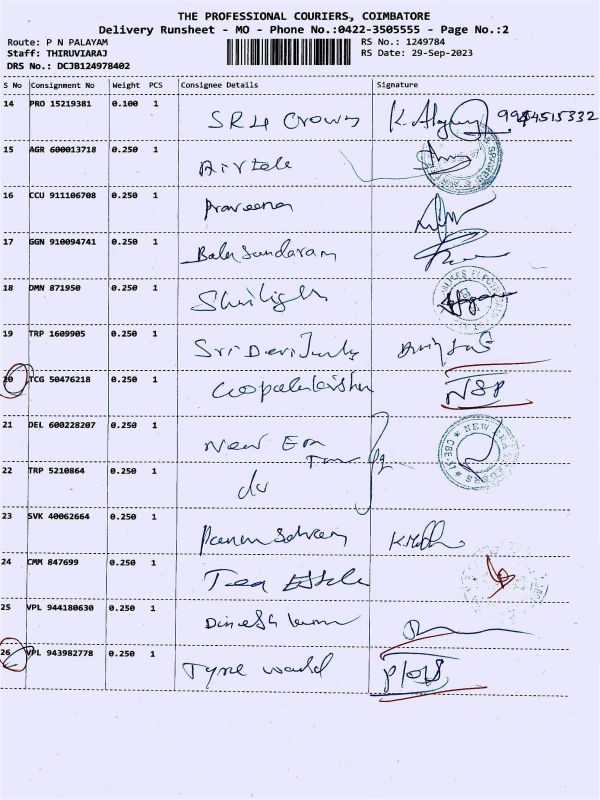 THE PROFESSIONAL COURIERS, COIMBATORE
Delivery Runsheet - MO - Phone No.:0422-3505555 - Page No.:2
Route: P N PALAYAM RS No.: 1249784
Staff: THIRUVIARAJ RS Date: 29-Sep-2023
DRS No.: DCJB124978402
S No Consignment No Weight PCS Consignee Details Signature
14 PRO 15219381 0.100 1 SR4 Crown
15 AGR 600013718 0.250 1 Airtele
16 CCU 911106708 0.250 1 Praveena
17 GGN 910094741 0.250 1 Bala Sundaram
18 DMN 871950 0.250 1
19 TRP 1609905 0.250 1 Sri Devi
20 TCG 50476218 0.250 1 NSP
21 DEL 600228207 0.250 1 New Era NEW ERA
22 TRP 5210864 0.250 1 do
23 SVK 40062664 0.250 1
24 CMM 847699 0.250 1 Tea Estate
25 VPL 944180630 0.250 1 Dinesh Kumar
26 VPL 943982778 0.250 1 Tyre World